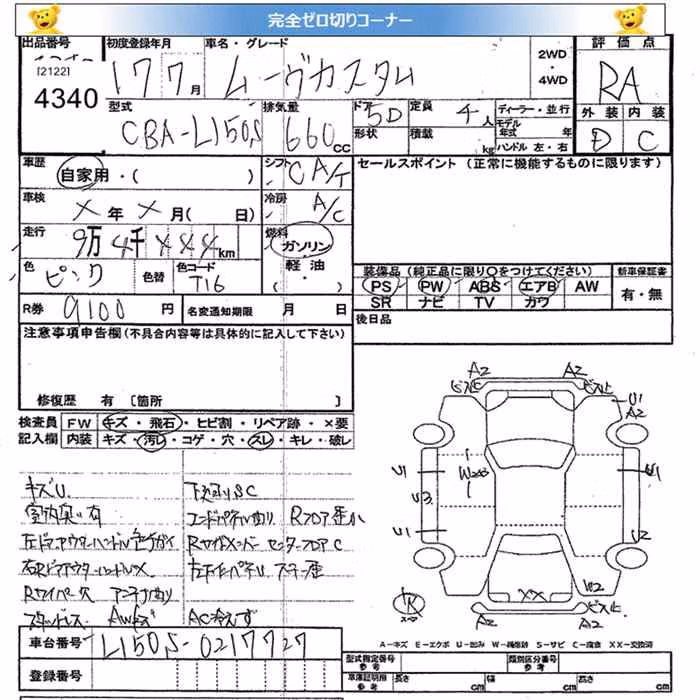 完全ゼロ切りコーナー
出品番号 初度登録年月 車名・グレード 2WD・4WD 評価点
[2122]
4340
17 7月 ムーヴカスタム RA
型式 排気量 ドア 形状 定員 積載 ディーラー・並行 モデル年式 年 ハンドル 左・右 外装 内装
CBA-L150S 660cc 5D 4人 kg D C
車歴 自家用・( ) シフト CA/T セールスポイント (正常に機能するものに限ります)
車検 X年X月( 日) 冷房 A/C
走行 9万4千***km 燃料 ガソリン・軽油・
色 ピンク 色替 色コード T16
装備品 (純正品に限り○をつけてください) 新車保証書
PS PW ABS エアB AW 有・無
SR ナビ TV カワ
R券 9100円 名変通知期限 月 日
後日品
注意事項申告欄 (不具合内容等は具体的に記入して下さい)
修復歴 有 [箇所 ]
検査員記入欄 FW キズ・飛石・ヒビ割・リペア跡・×要
内装 キズ・汚レ・コゲ・穴・スレ・キレ・破レ
キズU 下廻りSC
室内臭い有 エンドパネル曲り Rフロア歪み
左ドアアウターハンドル色チガイ Rサイドメンバー センターフロアC
右Rドアアウターハンドル×
Rワイパー欠 アンテナ曲り
AWキズ AC冷えず
車台番号 L150S-0217727
登録番号
A2 A2
ビス止 ビス止
U1 A2
U1 W2 U1
U3
U1 U2
XX W2
ビス止
A2 A2
A-キズ E-エクボ U-凹み W-補修跡 S-サビ C-腐食 XX-交換済
型式指定番号 参考 類別区分番号 参考
車庫証明用 参考 長さ cm 幅 cm 高さ cm